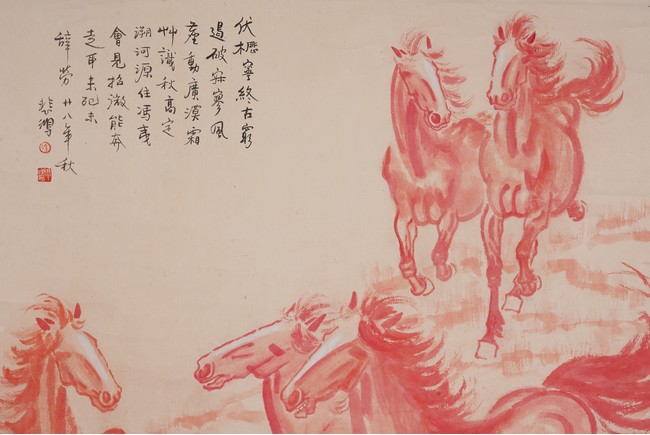 伏櫪寧終古窮
邊破寂寥風
塵動廣漠霜
艸識秋高定
溯河源往馮夷
會見招激能奔
走耳未死未
辭勞 廿八年秋
悲鴻